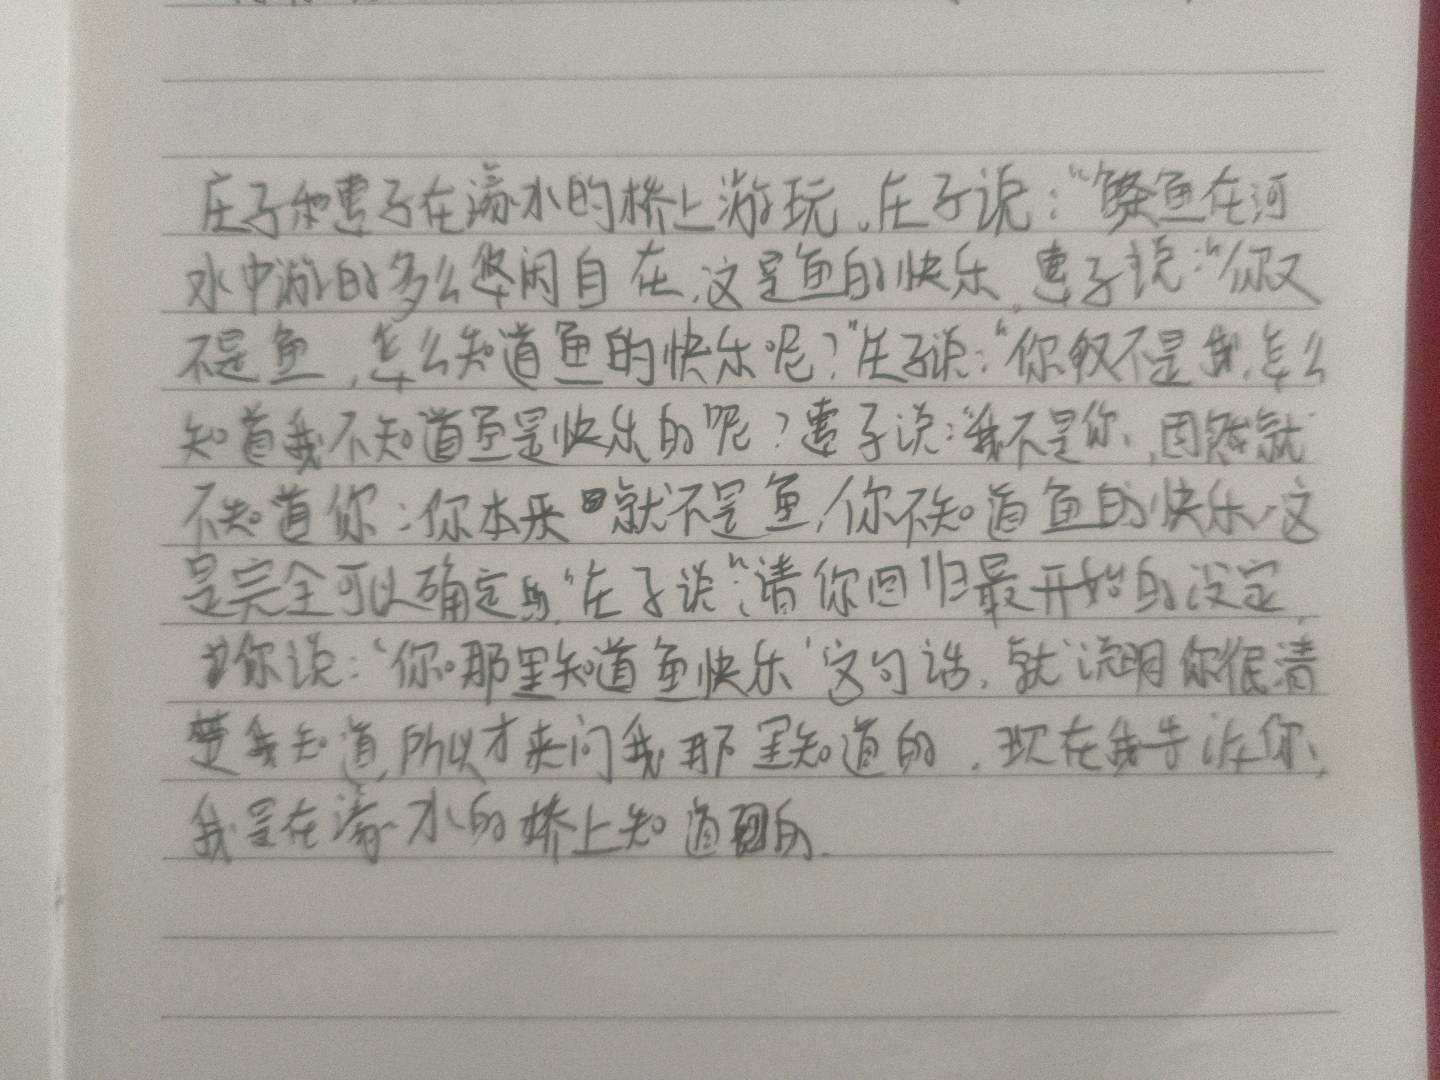 庄子和惠子在濠水的桥上游玩。庄子说:“鲦鱼在河
水中游的多么悠闲自在,这是鱼的快乐。惠子说:“你又
不是鱼,怎么知道鱼的快乐呢?”庄子说:“你又不是我,怎么
知道我不知道鱼是快乐的呢?惠子说:“我不是你,固然就
不知道你;你本来就不是鱼,你不知道鱼的快乐,这
是完全可以确定的。”庄子说:“请你回归最开始的设定,
你说:‘你哪里知道鱼快乐’这句话,就说明你很清
楚我知道,所以才来问我那里知道的。现在我告诉你,
我是在濠水的桥上知道的。